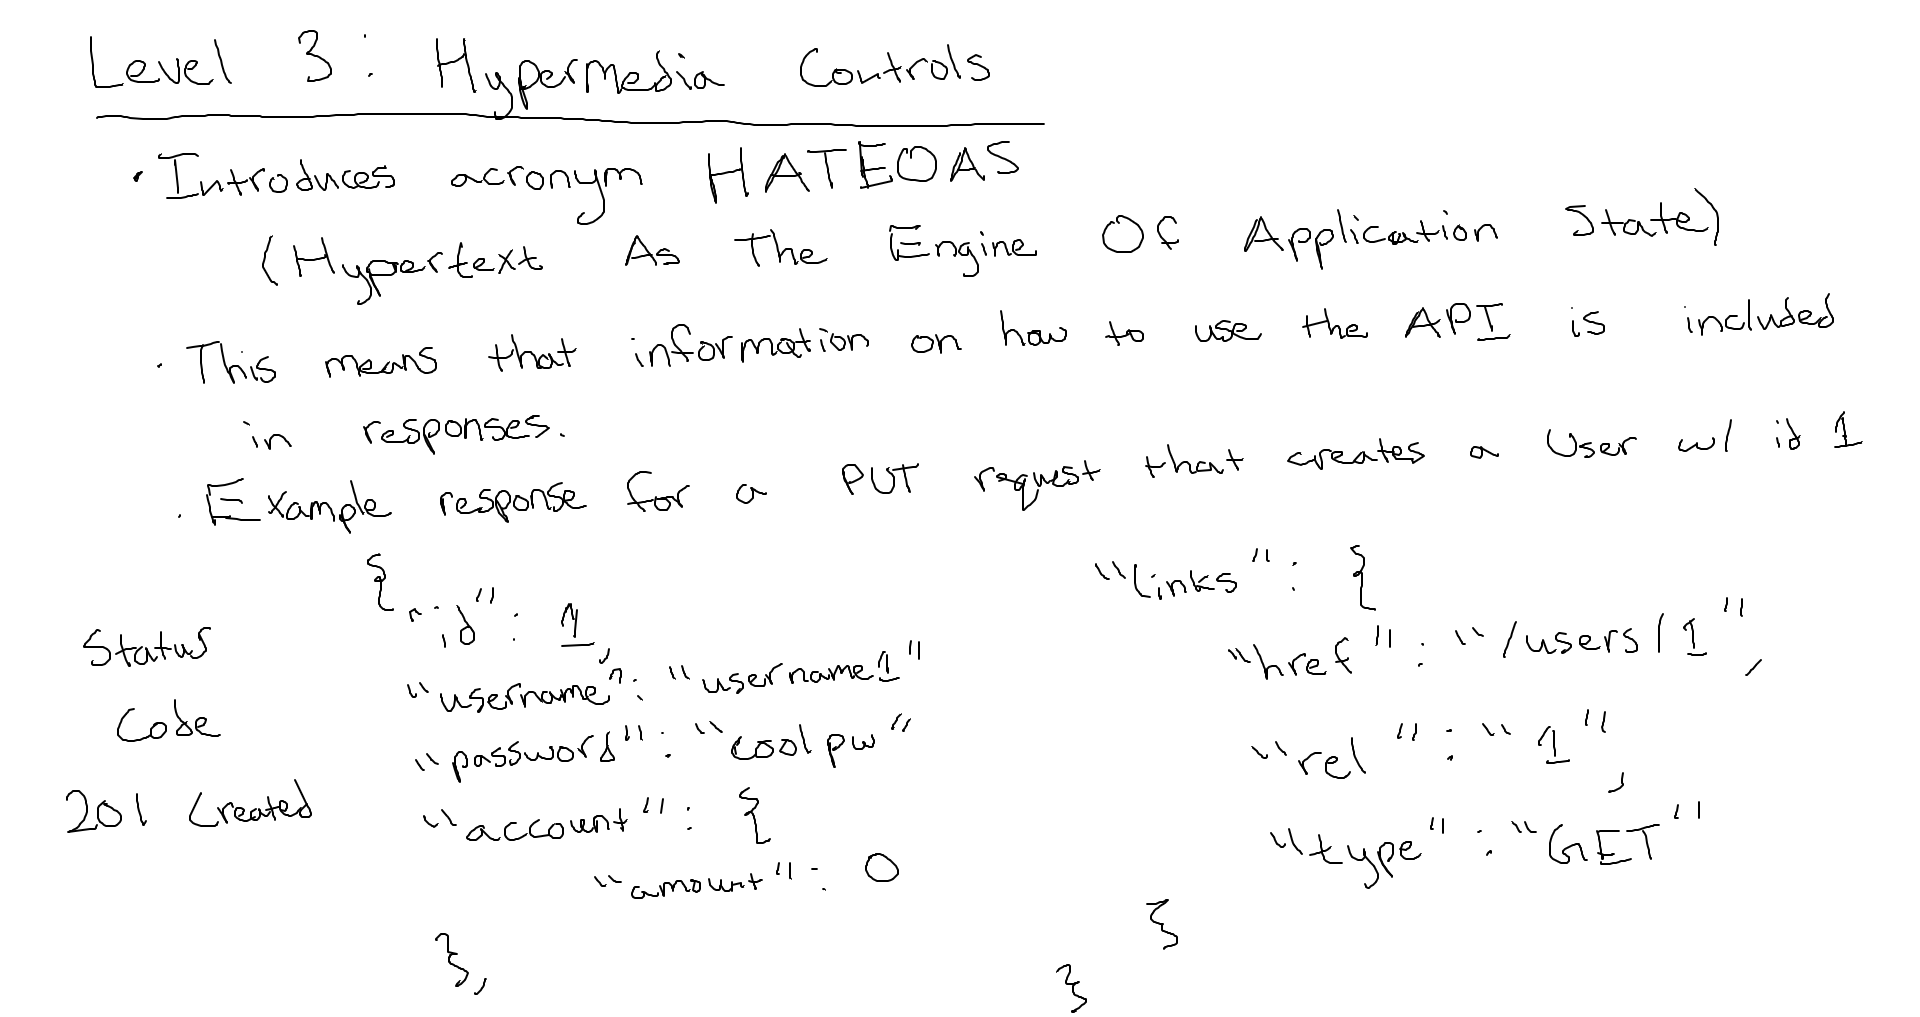 Level 3: Hypermedia Controls
· Introduces acronym HATEOAS
(Hypertext As The Engine Of Application State)
· This means that information on how to use the API is included
in responses.
· Example response for a PUT request that creates a User w/ id 1
Status
Code
201 Created
{
"id": 1,
"username": "username1"
"password": "coolpw"
"account": {
"amount": 0
},
"links": {
"href": "/users/1",
"rel": "1",
"type": "GET"
}
}